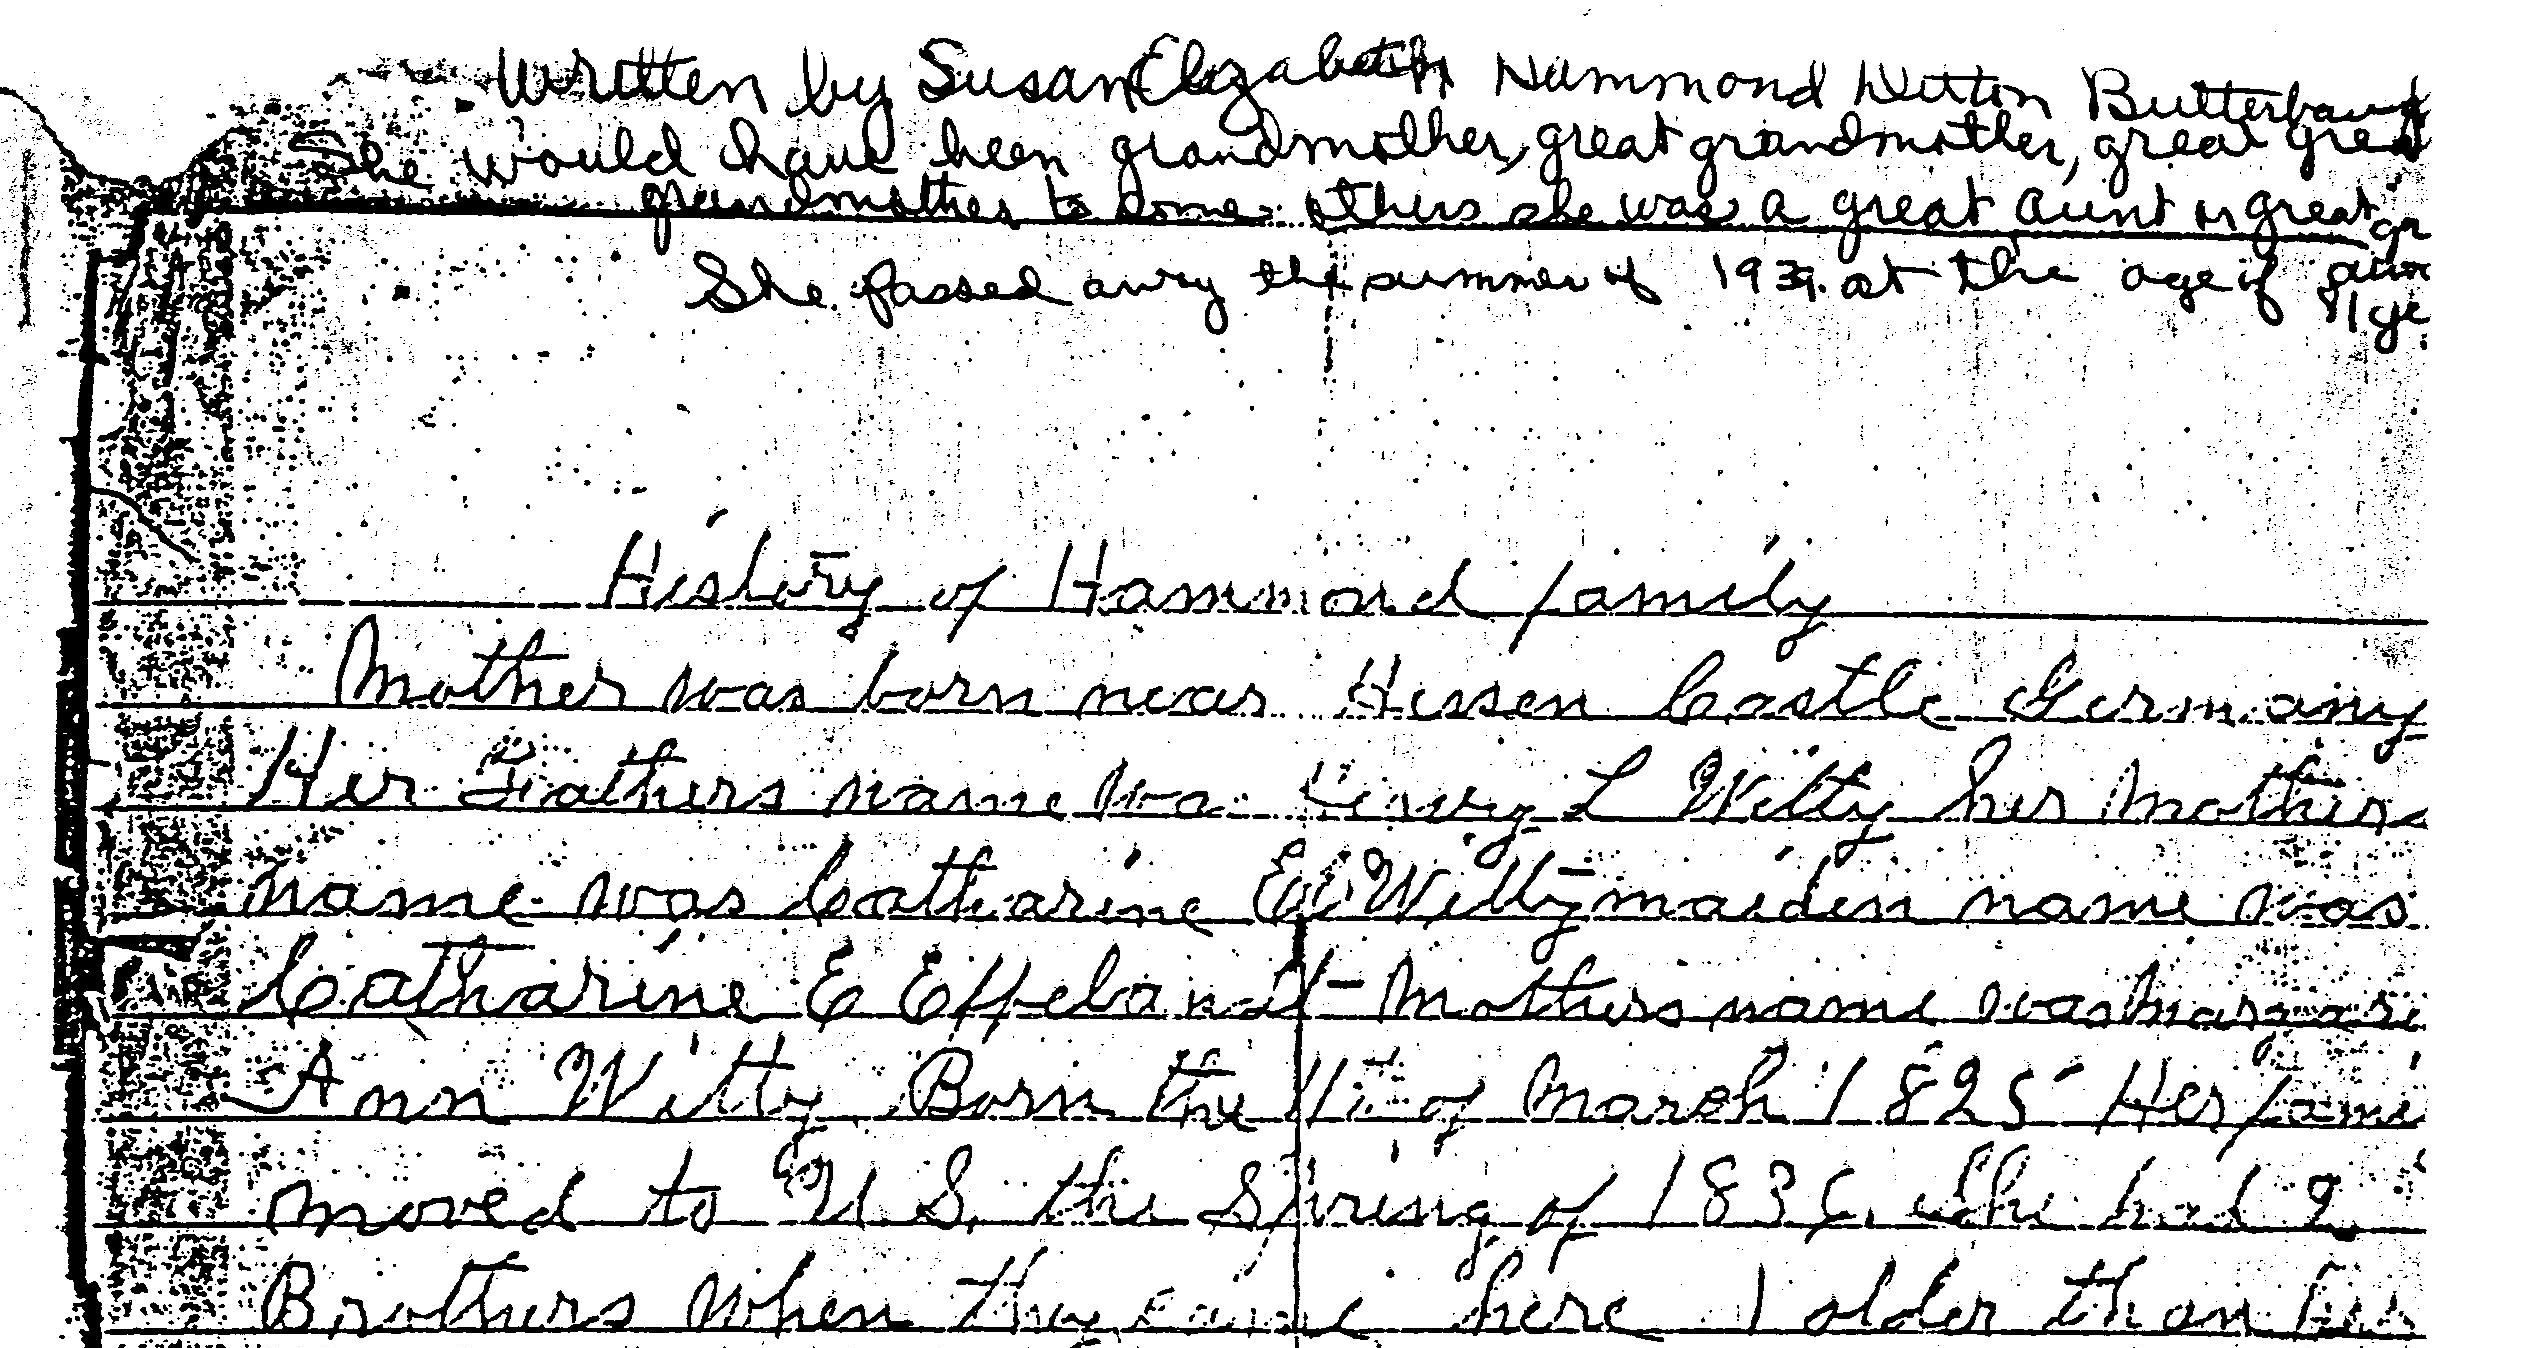 Written by Susan Elizabeth Hammond Ditton Butterbaugh
She would have been grandmother, great grandmother, great great
grandmother to some others she was a great aunt or great gr
She passed away the summer of 1939. at the age of aun
81 ye
History of Hammond family
Mother was born near Hessen Castle Germany
Her Fathers name wa Henry L Witty her mothers
name was Catharine E Witty maiden name was
Catharine E Effeland - Mothers name was Margare
Ann Witty Born the of March 1825 Her fami
moved to U S. the Spring of 1836. She had 2
Brothers when they came here 1 older than her